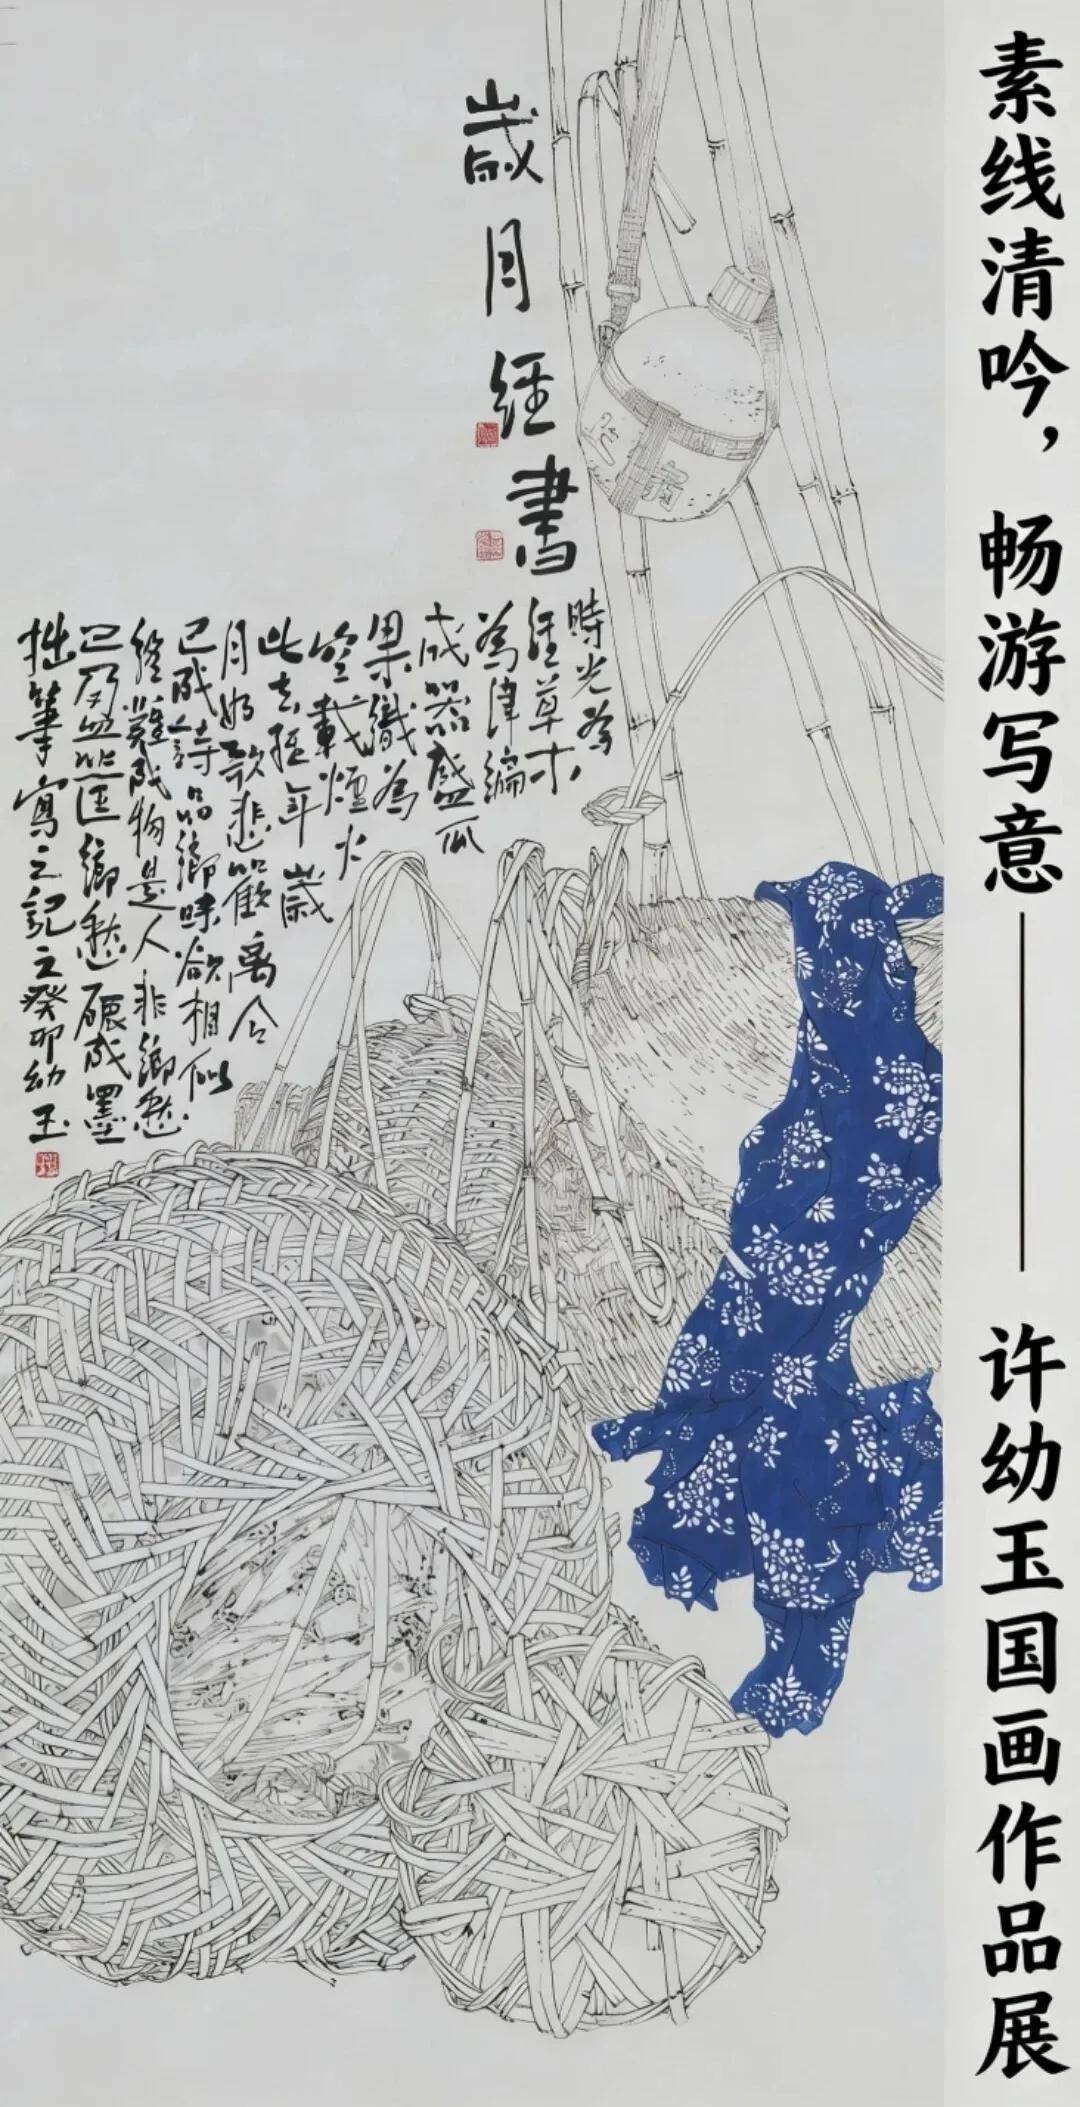 素线清吟，畅游写意——许幼玉国画作品展
歲月經書
時光為
經草木
為緯編
成器盛瓜
果織為
空載煙火
此去經年歲
月如歌悲歡離合
已成詩品鄉味欲相似
終難成物是人非鄉愁
已乃盈筐鄉愁碾成墨
拙筆寫之記之癸卯幼玉